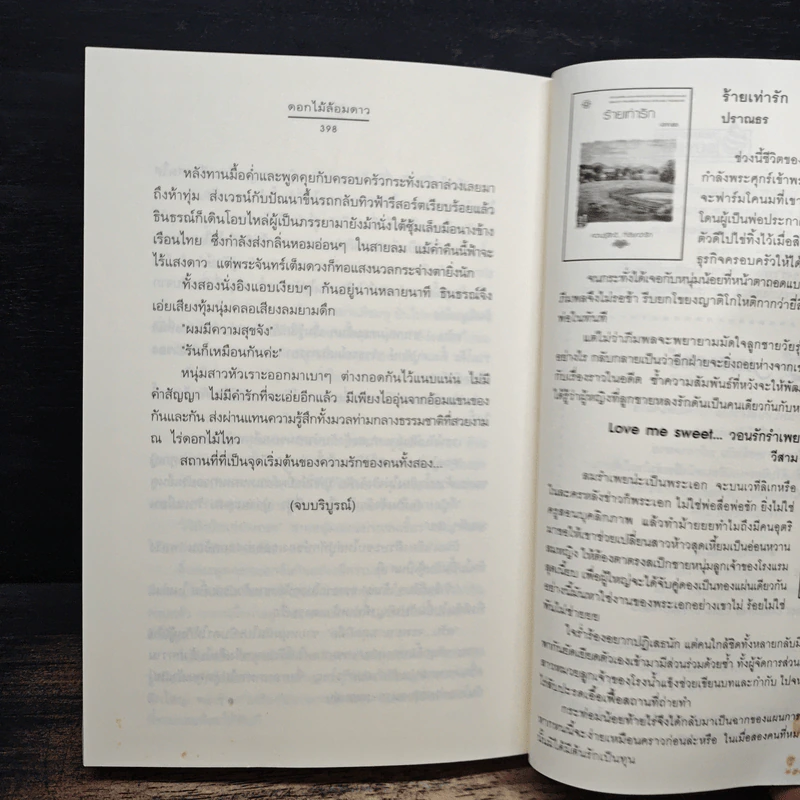 ดอกไม้ล้อมดาว
398
หลังทานมื้อค่ำและพูดคุยกับครอบครัวกระทั่งเวลาล่วงเลยมา
ถึงห้าทุ่ม ส่งเวธน์กับปัณนาขึ้นรถกลับทิวฟ้ารีสอร์ตเรียบร้อยแล้ว
ธินธรณ์ก็เดินโอบไหล่ผู้เป็นภรรยามายังม้านั่งใต้ซุ้มเล็บมือนางข้าง
เรือนไทย ซึ่งกำลังส่งกลิ่นหอมอ่อนๆ ในสายลม แม้ค่ำคืนนี้ฟ้าจะ
ไร้แสงดาว แต่พระจันทร์เต็มดวงก็ทอแสงนวลกระจ่างตายิ่งนัก
ทั้งสองนั่งอิงแอบเงียบๆ กันอยู่นานหลายนาที ธินธรณ์จึง
เอ่ยเสียงทุ้มนุ่มคลอเสียงลมยามดึก
"ผมมีความสุขจัง"
"รันก็เหมือนกันค่ะ"
หนุ่มสาวหัวเราะออกมาเบาๆ ต่างกอดกันไว้แนบแน่น ไม่มี
คำสัญญา ไม่มีคำรักที่จะเอ่ยอีกแล้ว มีเพียงไออุ่นจากอ้อมแขนของ
กันและกัน ส่งผ่านแทนความรู้สึกทั้งมวลท่ามกลางธรรมชาติที่สวยงาม
ณ ไร่ดอกไม้ไหว
สถานที่ที่เป็นจุดเริ่มต้นของความรักของคนทั้งสอง...
(จบบริบูรณ์)
ร้ายเท่ารัก
ร้ายเท่ารัก
ปราณธร
ช่วงนี้ชีวิตของ
กำลังพระศุกร์เข้าพระ
จะฟาร์มโคนมที่เขา
โดนผู้เป็นพ่อประกาศ
ตัวดีไปใช่ทิ้งไว้เมื่อสิ
ธุรกิจครอบครัวให้ได้
จนกระทั่งได้เจอกับหนุ่มน้อยที่หน้าตาถอดแบบ
ภีมพลจึงไม่รอช้า รีบยกโขยงญาติโกโหติกากว่ายี่สิ
พ่อในทันที
แต่ไม่ว่าภีมพลจะพยายามมัดใจลูกชายวัยรุ่
อย่างไร กลับกลายเป็นว่าอีกฝ่ายจะยิ่งถอยห่างจากเ
กับเรื่องราวในอดีต ซ้ำความสัมพันธ์ที่หวังจะให้พัฒ
ได้รู้ว่าผู้หญิงที่ลูกชายหลงรักดันเป็นคนเดียวกันกับห
Love me sweet... วอนรักรำเพย
วีสาม
สมรำเพยน่ะเป็นพระเอก จะบนเวทีลิเกหรือ
ในละครหลังข่าวก็พระเอก ไม่ใช่พ่อสื่อพ่อชัก ยิ่งไม่ใช่
ครูสอนบุคลิกภาพ แล้วทำม้ายยยทำไมถึงมีคนอุตริ
มาขอให้เขาช่วยเปลี่ยนสาวห้าวสุดเหี้ยมเป็นอ่อนหวาน
สมหญิง ให้ต้องตาตรงสเป็กชายหนุ่มลูกเจ้าของโรงแรม
สุดเนี้ยบ เพื่อผู้ใหญ่จะได้จับคู่ดองเป็นทองแผ่นเดียวกัน
อย่างนี้มันหาใช่งานของพระเอกอย่างเขาไม่ ร้อยไม่ใช่
พันไม่ช่ายยย
ใจร่ำร้องอยากปฏิเสธนัก แต่คนใกล้ชิดทั้งหลายกลับมี
กระท่อมน้อยท้ายไร่จึงได้กลับมาเป็นฉากของแผนการ